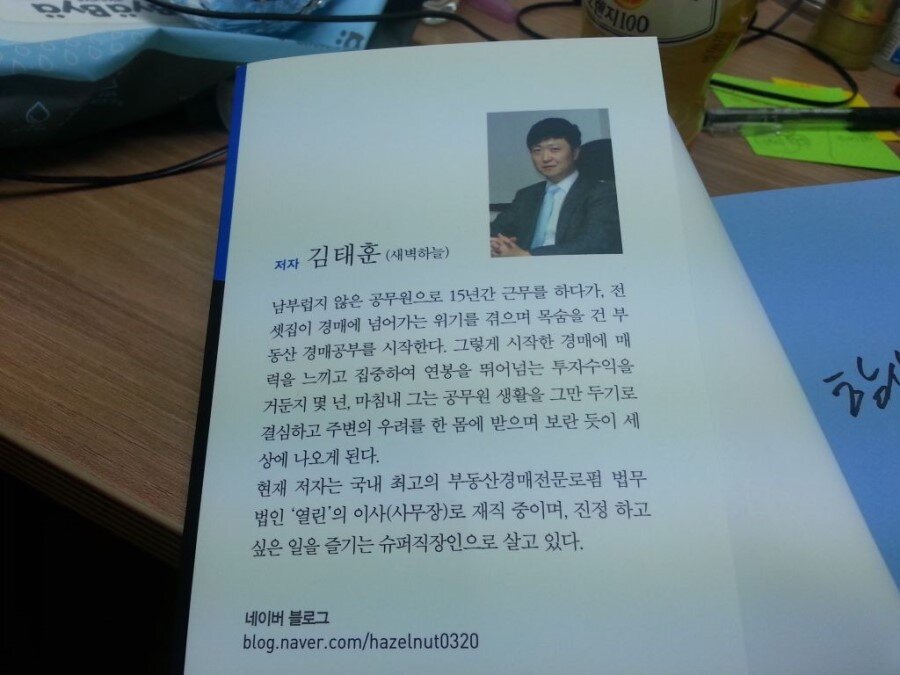 지100
저자 김태훈 (새벽하늘)
남부럽지 않은 공무원으로 15년간 근무를 하다가, 전
셋집이 경매에 넘어가는 위기를 겪으며 목숨을 건 부
동산 경매공부를 시작한다. 그렇게 시작한 경매에 매
력을 느끼고 집중하여 연봉을 뛰어넘는 투자수익을
거둔지 몇 년, 마침내 그는 공무원 생활을 그만 두기로
결심하고 주변의 우려를 한 몸에 받으며 보란 듯이 세
상에 나오게 된다.
현재 저자는 국내 최고의 부동산경매전문로펌 법무
법인 ‘열린’의 이사(사무장)로 재직 중이며, 진정 하고
싶은 일을 즐기는 슈퍼직장인으로 살고 있다.
네이버 블로그
blog.naver.com/hazelnut0320